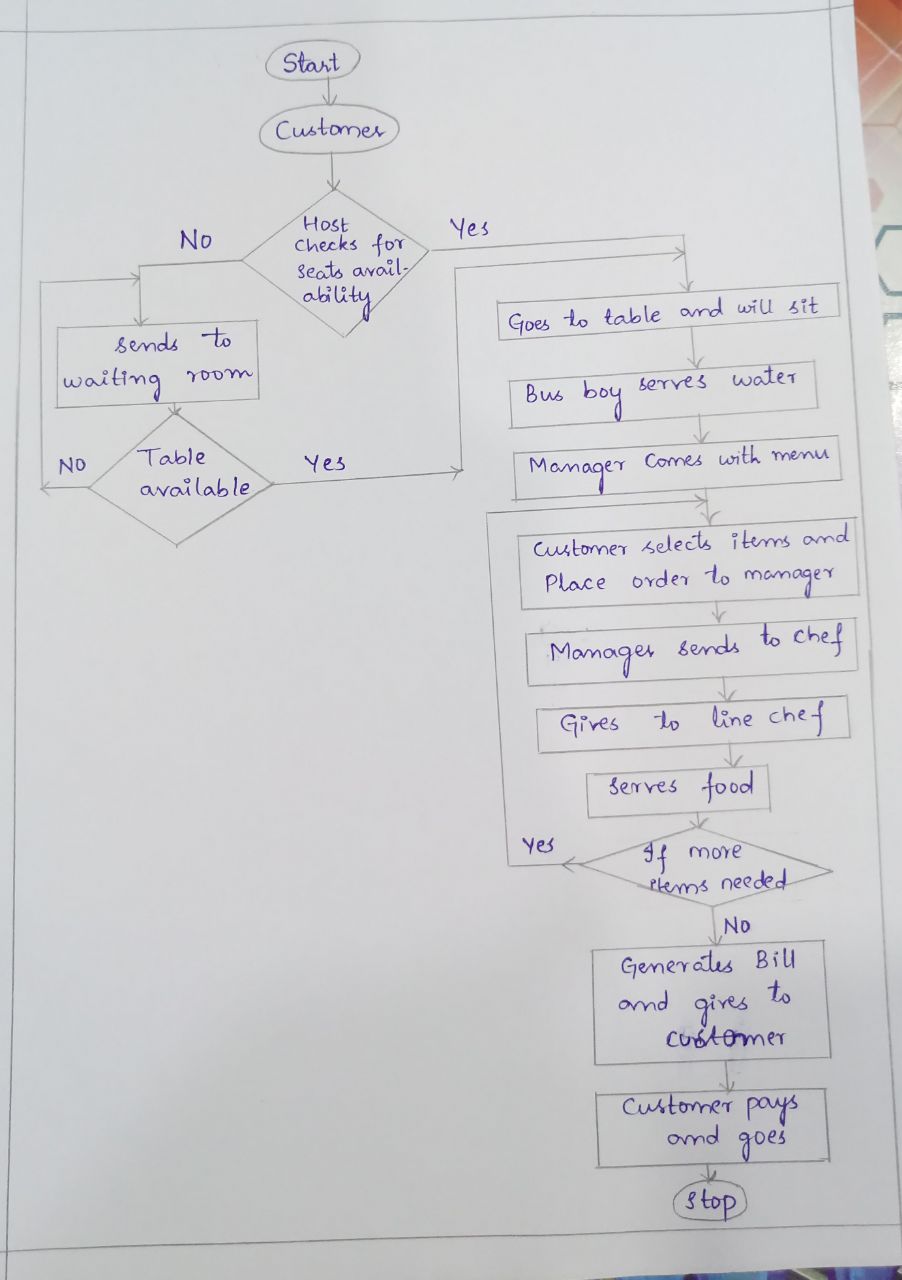 Start
Customer
Host
checks for
seats avail-
ability
No
Yes
sends to
waiting room
Table
available
No
Yes
Goes to table and will sit
Bus boy serves water
Manager Comes with menu
Customer selects items and
Place order to manager
Manager sends to chef
Gives to line chef
serves food
If more
items needed
Yes
No
Generates Bill
and gives to
customer
Customer pays
and goes
stop